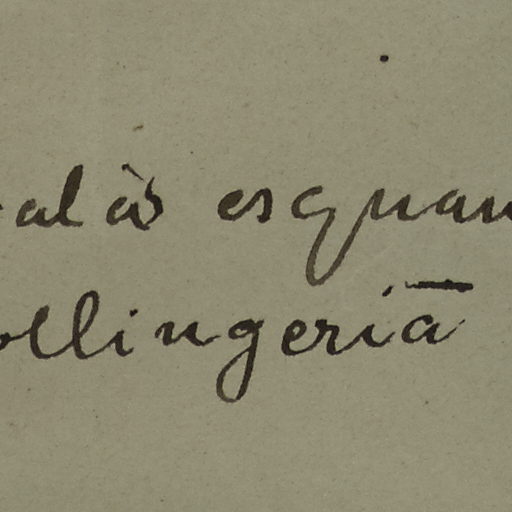 alàs esquam
ollingeriā